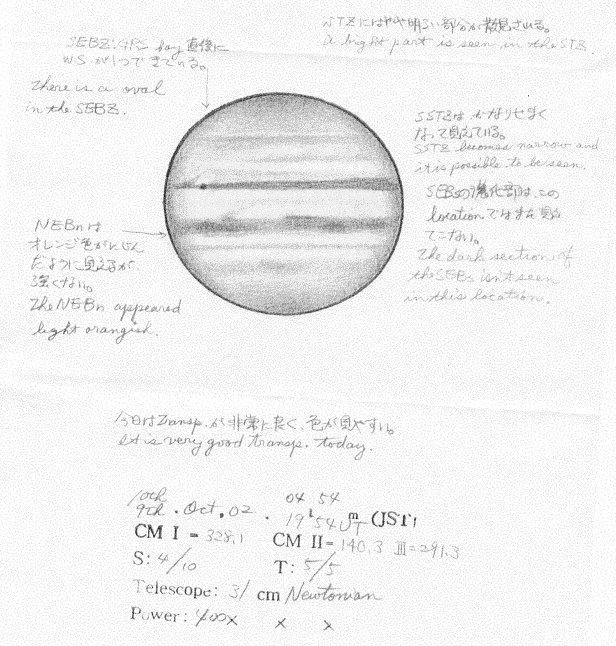 STZにはやや明るい部分が散見される。
a bright part is seen in the STZ.
SEBZ: GRS bay 直後に
WSが1つできている。
There is a oval
in the SEBZ.
SSTZは かなりせまく
なって見えている。
SSTZ becomes narrow and
it is possible to be seen.
SEBsの濃化部は、この
locationではまだ見え
てこない。
The dark section of
the SEBs isn't seen
in this location.
NEBnは
オレンジ色がにじん
だように見えるが、
強くない。
The NEBn appeared
light orangish.
今日はTransp.が非常に良く、色が見やすい。
It is very good transp. today.
10th 04 54
9th . Oct. 02 . 19h 54m UT (JST)
CM I = 328.1 CM II = 140.3 III = 291.3
S: 4/10 T: 5/5
Telescope: 31 cm Newtonian
Power: 400x x x